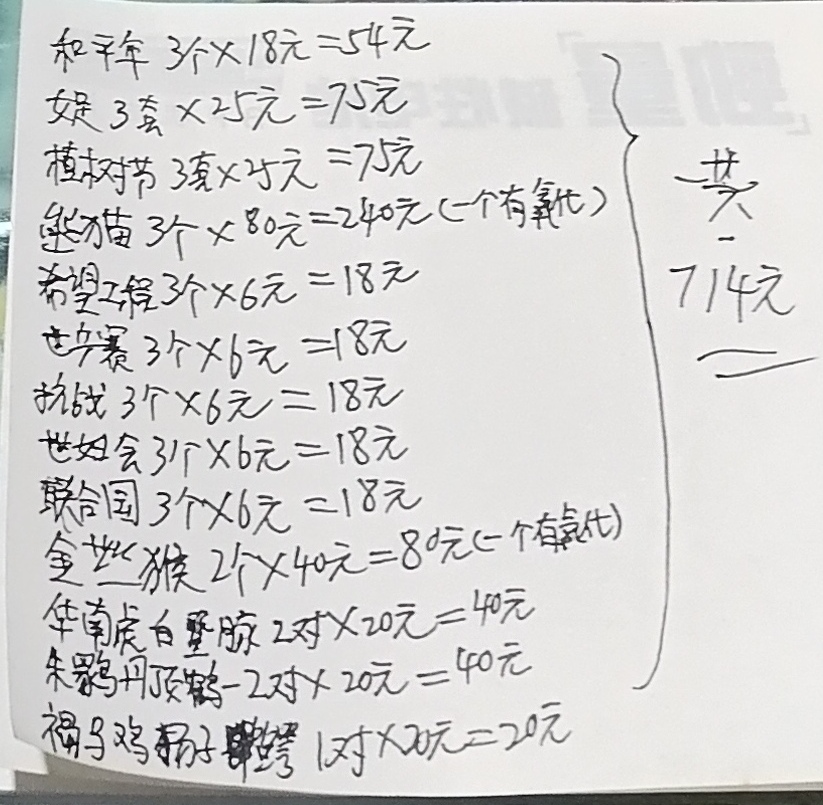 和平年 3个×18元=54元
女足 3套×25元=75元
植树节 3套×25元=75元
熊猫 3个×80元=240元(一个有氧化)
希望工程3个×6元=18元
世乒赛 3个×6元=18元
抗战 3个×6元=18元
世妇会 3个×6元=18元
联合国 3个×6元=18元
金丝猴 2个×40元=80元(一个有氧化)
华南虎白暨豚 2对×20元=40元
朱鹮丹顶鹤-2对×20元=40元
褐马鸡扬子鳄 1对×20元=20元
共
714元